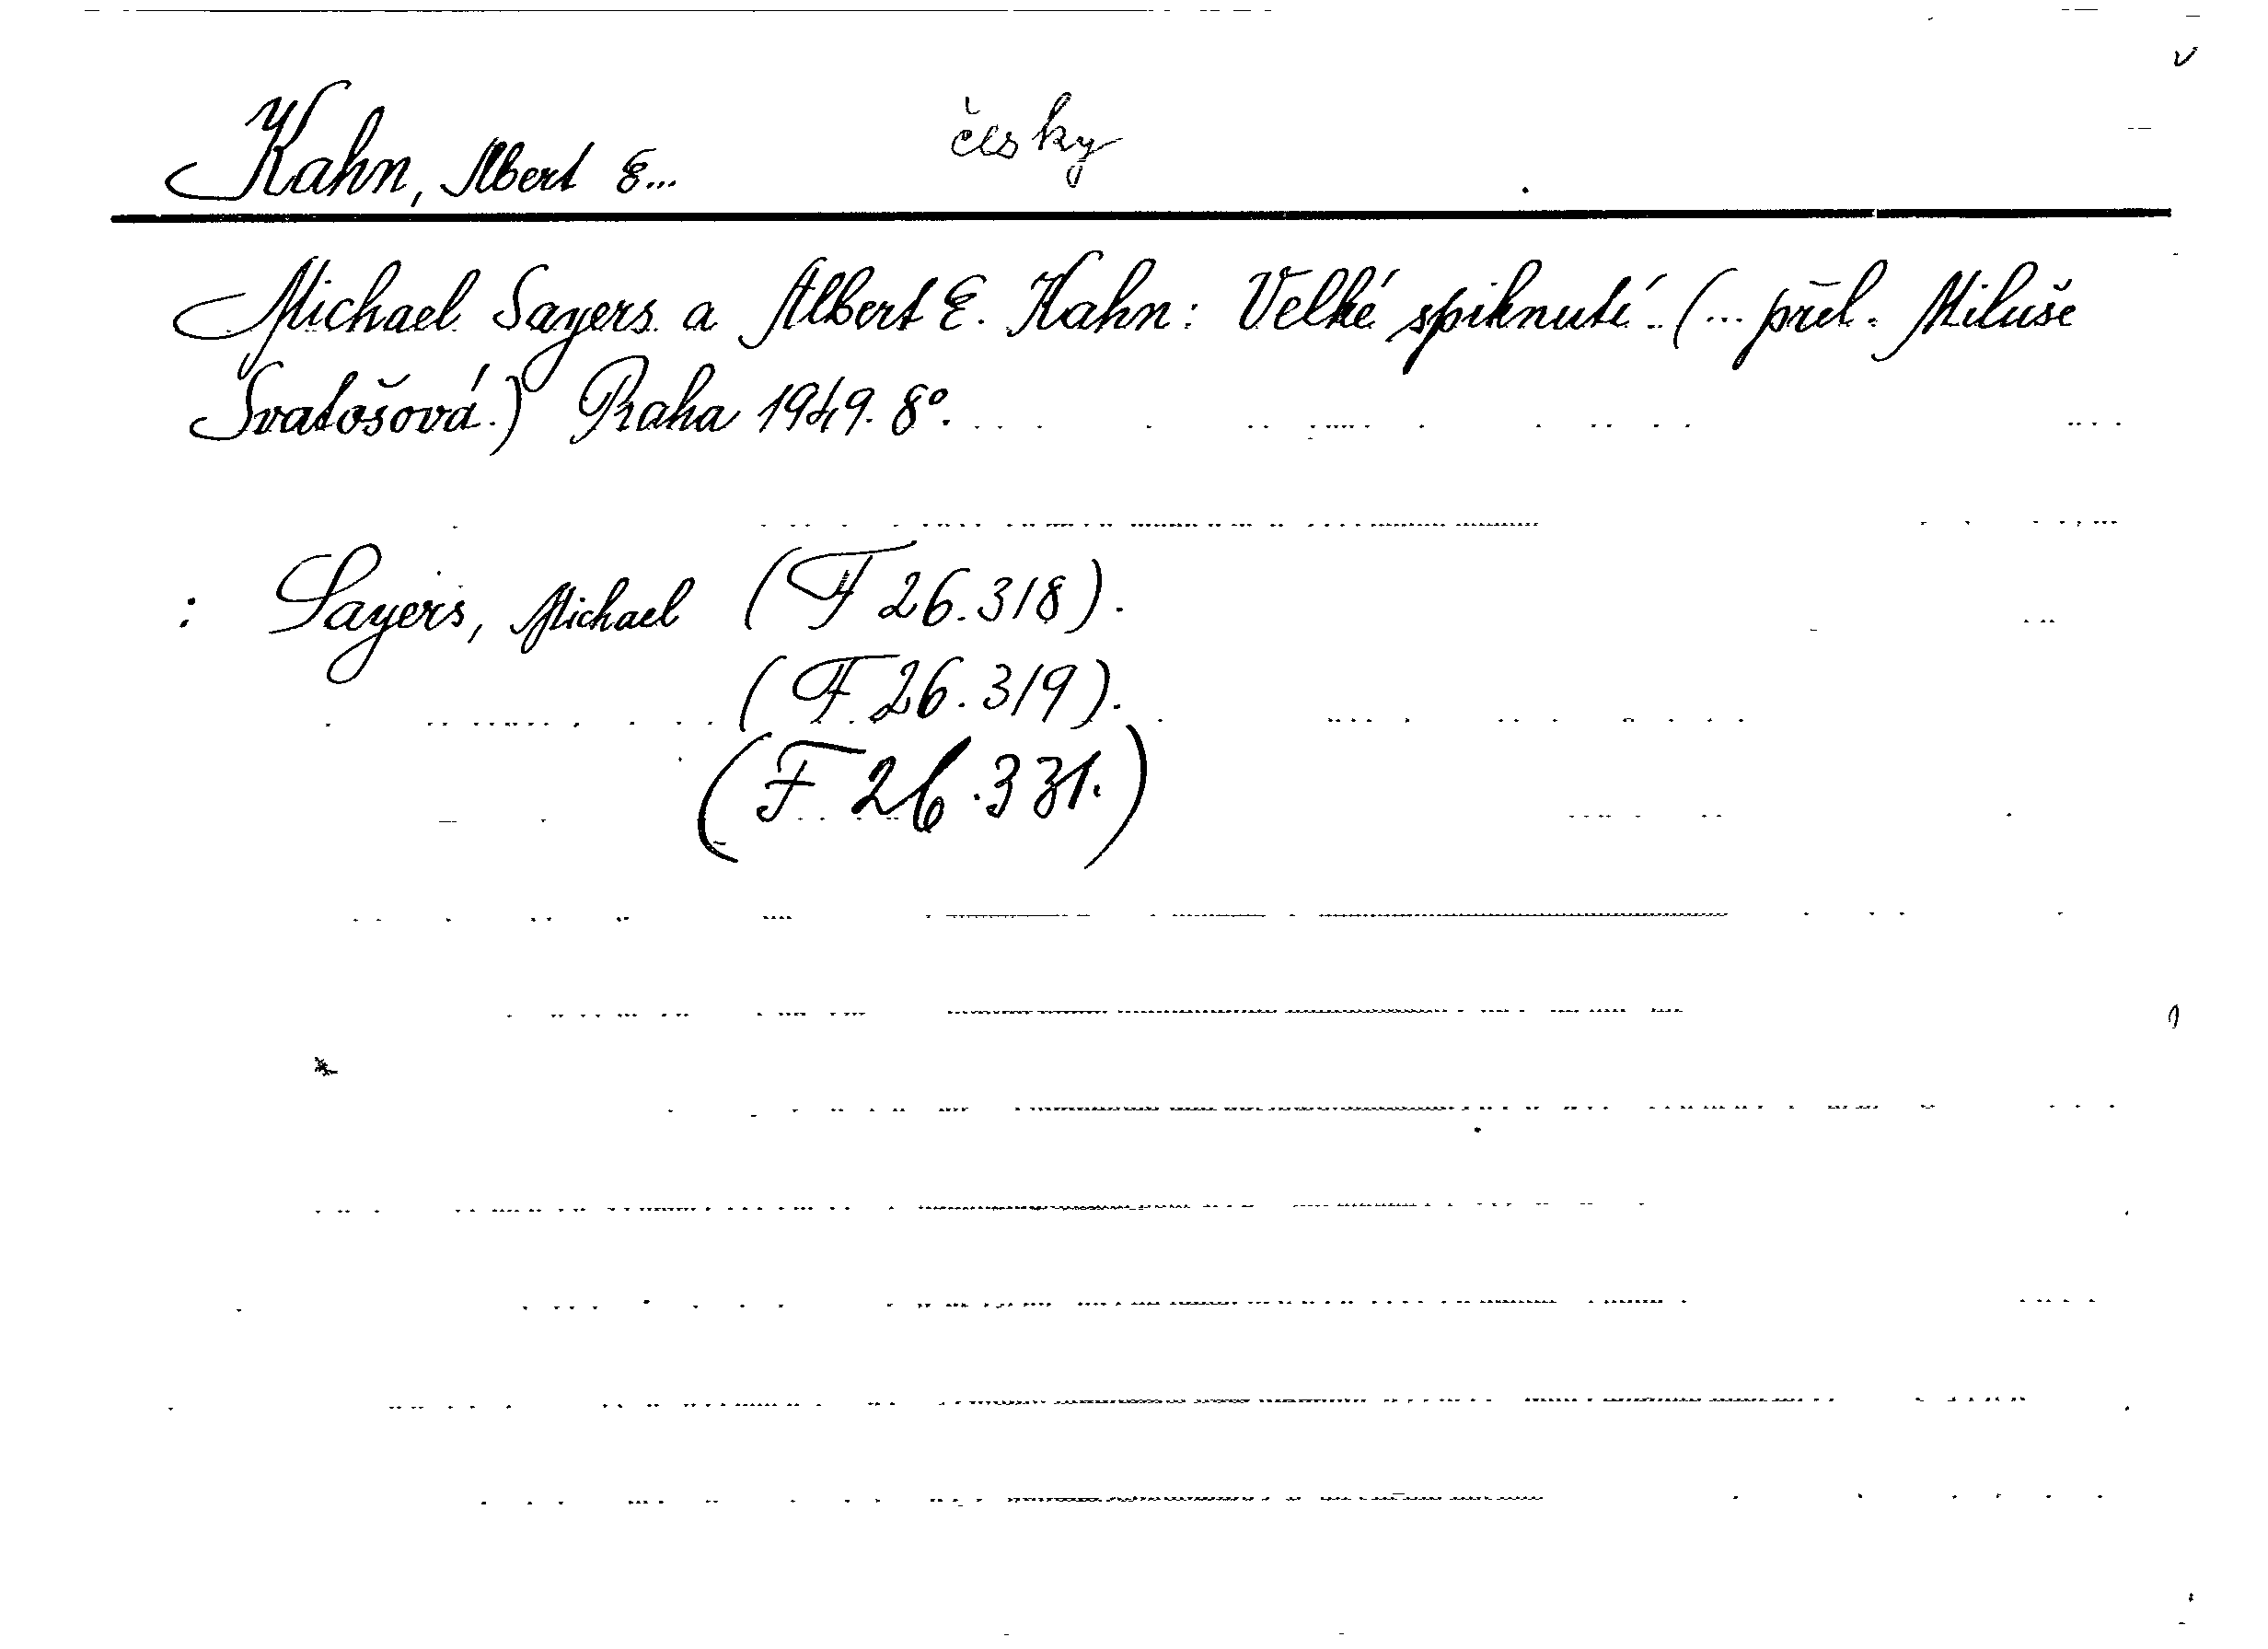 Kahn, Albert E... česky
Michael Sayers a Albert E. Kahn: Velké spiknutí. (... přel. Miluše
Svatošová.) Praha 1949. 8°.
: Sayers, Michael (F 26.318).
(F 26.319).
(F 26.331.)